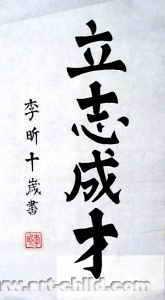 立志成才
李昕十歲書
www.art-child.com